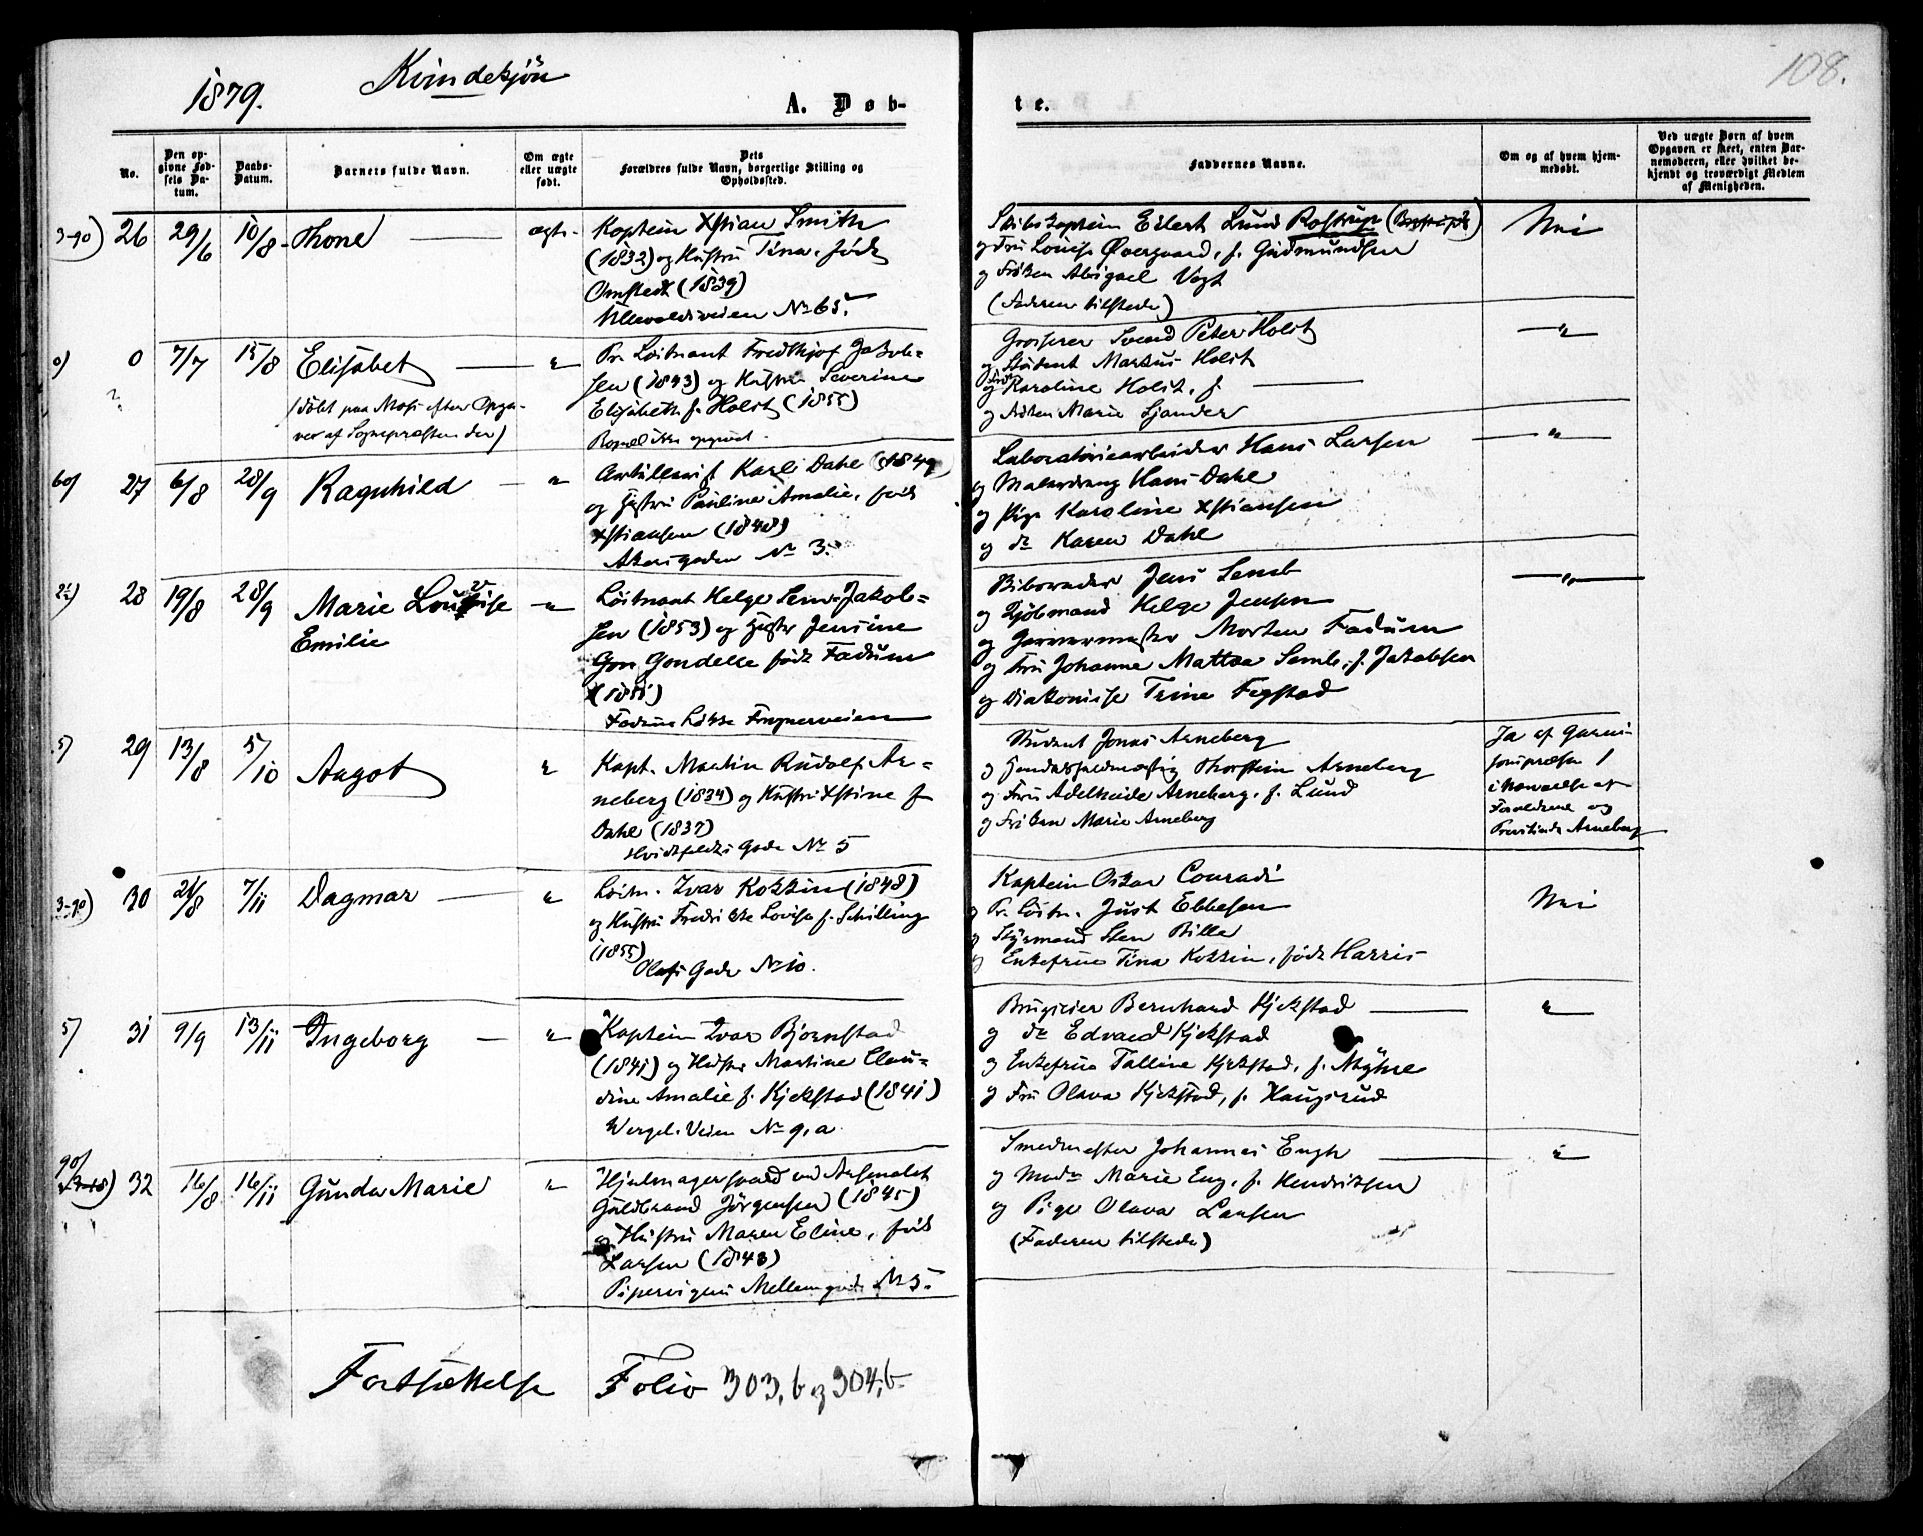 1879.
Kvindekjön
108.
A. Døb-
te.
No.
Den op-
givne Fød-
sels Da-
tum.
Daabs-
Datum.
Barnets fulde Navn.
Om ægte
eller uægte
født.
Dets
Forældres fulde Navn, borgerlige Stilling og
Opholdssted.
Faddernes Navne.
Om og af hvem hjem-
medøbt.
Ved uægte Børn af hvem
Opgaven er skeet, enten Bar-
nemoderen, eller hvilket be-
kjendt og troværdigt Medlem
af Menigheden.
26 29/6 10/8 Thone ægte
Kaptein Xstian Smith
(1832) og Hustru Tina, født
Omstedt (1839)
Ullevoldsveien No 65.
Skibskaptein Eilert Lund Rostrup
og Fru Louise Overgaard, f. Gudmundsen
og Frøken Abigael Vogt
(Faderen tilstede)
Nei
0 7/7 15/8 Elisabet "
(döbt paa Moss efter Opga-
ver af Sognepræsten der)
Pr. Løitnant Fredthjof Jakob-
sen (1843) og Hustru Severine
Elisabeth f. Holst (1855)
Bopæl ikke opgivet.
Grosserer Svend Peter Holst
og Student Markus Holst
og Fru Karoline Holst, f.
og Frøken Marie Sjander
"
27 6/8 28/9 Ragnhild "
Artillerist Karl Dahl (1849)
og Hustru Pauline Amalie, født
Xstiansen (1848)
Akersgaden No 3.
Laboratoriearbeider Hans Larsen
og Malerdreng Hans Dahl
og Pige Karoline Xstiansen
og do Karen Dahl
"
28 19/8 28/9 Marie Louise
Emilie "
Löitnant Helge Sem Jakob-
sen (1853) og Hustr Jensine
Gon Gondelle født Fadum
(1851)
Fadums Løkke Frognerveien
Jens Semb
og Kjöbmand Helge Jensen
og Garvermester Morten Fadum
og Fru Johanne Mattea Semb, f. Jakobsen
og Diakonisse Trine Fegstad
"
29 13/8 5/10 Aagot "
Kapt. Martin Rudolf Ar-
neberg (1834) og Hustru Xstine f
Dahl (1837)
Hvidtfeldts Gade No 5
Student Jonas Arneberg
og Thorstein Arneberg
og Fru Adelheide Arneberg, f. Lund
og Fröken Marie Arneberg
Ja af Garni-
sonspræsten
i Nærværelse af
Forældrene og
Arneberg
30 21/8 7/11 Dagmar "
Löitn. Ivar Kokkin (1848)
og Hustru Fredrikke Lovise f. Schilling
(1855)
Olafs Gade No 10.
Kaptein Oskar Conradi
og Pr. Löitn. Just Ebbesen
og Styrmand Sten Bille
og Enkefrue Tina Kokkin, født Harris
Nei
31 9/9 13/11 Ingeborg "
Kaptein Ivar Bjørnstad
(1841) og Hustru Martine Clau-
dine Amalie f. Kjekstad (1841)
Wergel. Veien No 9, a
Brugseier Bernhard Kjekstad
og do Edvard Kjekstad
og Enkefrue Talline Kjekstad, f. Myhre
og Fru Olava Kjekstad, f. Haugsrud
"
32 16/8 16/11 Gunda Marie "
Hjulmagersvend ved Arsenalet
Guldbrand Jörgensen (1845)
og Hustru Maren Eline, født
Larsen (1843)
Pipervigens Mellemgade No 5.
Smedmester Johannes Engh
og Mad. Marie Eng, f. Hendriksen
og Pige Olava Larsen
(Faderen tilstede)
"
Fortsættelse Folio 303, b og 304, b.